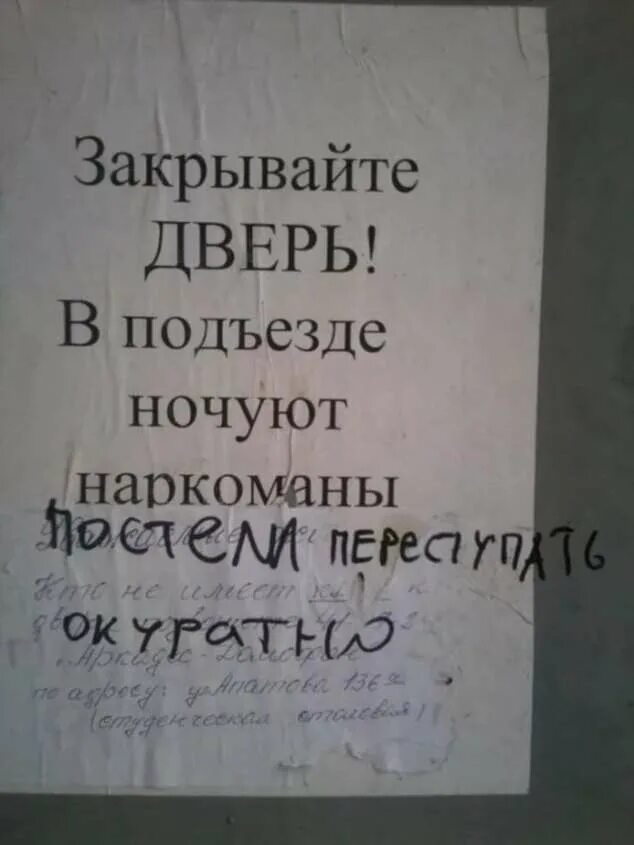 Закрывайте
ДВЕРЬ!
В подъезде
ночуют
наркоманы
ПОСТЕЛИ ПЕРЕСТУПАТЬ
Кто не имеет
ОКУРАТНО
по адресу: ул Апатова 136а
(студенческая столовая)